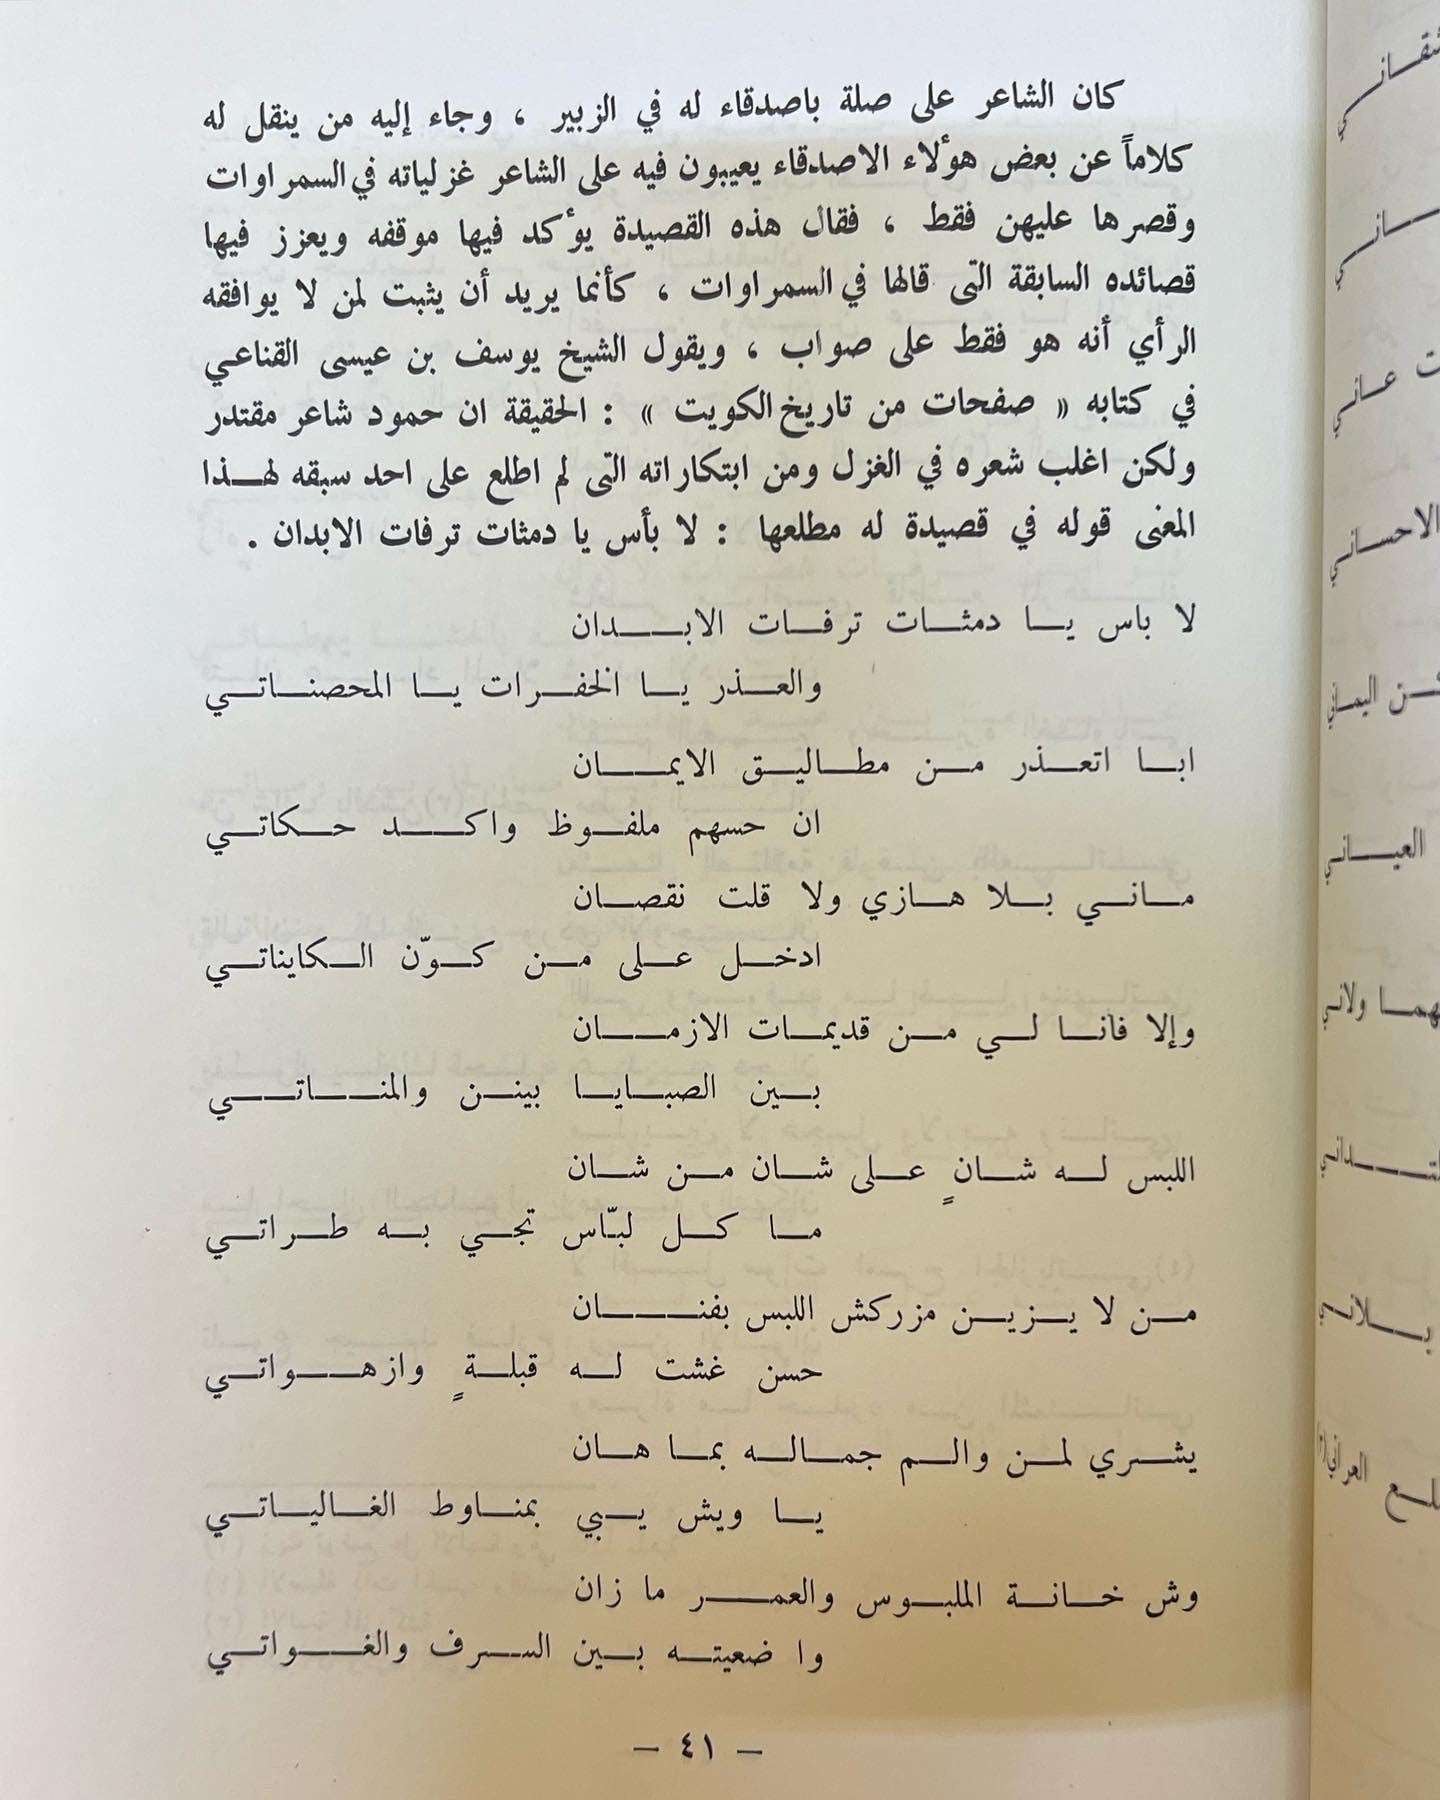 كان الشاعر على صلة باصدقاء له في الزبير ، وجاء إليه من ينقل له
كلاماً عن بعض هؤلاء الاصدقاء يعيبون فيه على الشاعر غزلياته في السمراوات
وقصرها عليهن فقط ، فقال هذه القصيدة يؤكد فيها موقفه ويعزز فيها
قصائده السابقة التى قالها في السمراوات ، كأنما يريد أن يثبت لمن لا يوافقه
الرأي أنه هو فقط على صواب ، ويقول الشيخ يوسف بن عيسى القناعي
في كتابه « صفحات من تاريخ الكويت » : الحقيقة ان حمود شاعر مقتدر
ولكن اغلب شعره في الغزل ومن ابتكاراته التى لم اطلع على احد سبقه لهذا
المعنى قوله في قصيدة له مطلعها : لا بأس يا دمثات ترفات الابدان .
لا باس يا دمثات ترفات الابدان
والعذر يا الخفرات يا المحصناتي
ابا اتعذر من مطاليق الايمان
ان حسهم ملفوظ واكد حكاتي
ماني بلا هازي ولا قلت نقصان
ادخل على من كوّن الكايناتي
وإلا فانا لي من قديمات الازمان
بين الصبايا بينن والمناتي
اللبس له شانٍ على شان من شان
ما كل لبّاس تجي به طراتي
من لا يزين مزركش اللبس بفنان
حسن غشت له قبلةٍ وازهواتي
يشري لمن والم جماله بما هان
يا ويش يبي بمناوط الغالياتي
وش خانة الملبوس والعمر ما زان
وا ضعيته بين السرف والغواتي
— ٤١ —
ت عاني
الاحساني
ن اليماني
العياني
هما ولاني